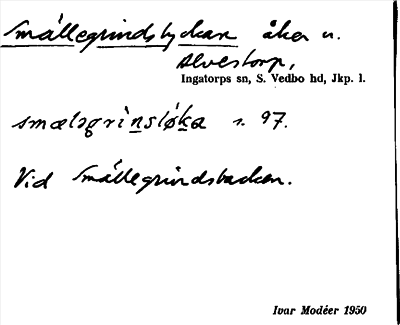 Smällegrindstyckan åker u.
Alvestorp,
Ingatorps sn, S. Vedbo hd, Jkp. l.
smæləgrìnstø̀ka s. 97.
Vid Smällegrindsbacken.
Ivar Modéer 1950